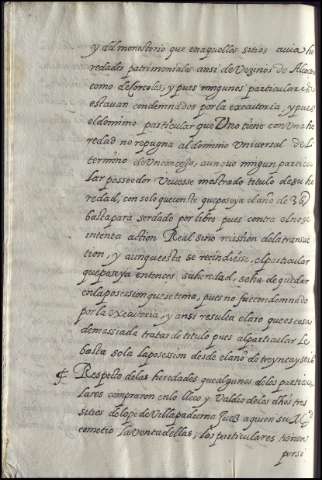 y al monesterio que en aquellos sitios auia he
redades patrimoniales ansi de Vezinos de Alcaraz
como de forcolas, y pues ningunos particulares
estauan condemnados por la executoria, y pues
el dominio particular que Uno tiene con Una he
redad no repugna al dominio Uniuersal del
termino de Un conçejo, aunque ningun particu
lar posseedor Uuiesse mostrado titulo de su he
redad, con solo que conste que poseya el año de 36
basta para ser dado por libre pues contra el no se
intenta action Real sino rescision de la transac
tion, y aunque esta se recindiesse, el particular
que poseya entonces su heredad, se ha de quedar
en la posession que se tenia, pues no fue condemnado
por la executoria, y ansi resulta claro que es cosa
demassiada tratar de titulo pues al particular le
basta sola la posession desde el año de treynta y seis
Respeto de las heredades que algunos de los particu
lares compraron en lo lleco y Valdio de los dhos tres
sitios de lope de Villapaderna Juez a quien su Mag
cometio la venta dellas, los particulares tienen
purse